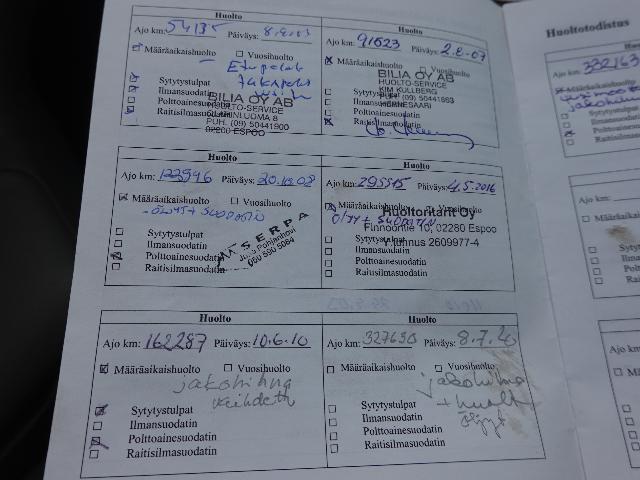 Huolto
Ajo km: 54135 Päiväys: 8.2.03
Määräaikaishuolto Vuosihuolto
Etupalat
Sytytystulpat
Ilmansuodatin
Polttoainesuodatin
Raitisilmasuodatin
BILIA OY AB
HUOLTO-SERVICE
OLARINLUOMA 8
PUH. (09) 50441900
02200 ESPOO
Huolto
Ajo km: 91623 Päiväys: 2.2.07
Määräaikaishuolto Vuosihuolto
BILIA OY AB
HUOLTO-SERVICE
KIM KULLBERG
PUH. (09) 50441663
HERNESAARI
Sytytystulpat
Ilmansuodatin
Polttoainesuodatin
Raitisilmasuodatin
Huolto
Ajo km: 122996 Päiväys:
Määräaikaishuolto Vuosihuolto
ÖLJYT + SUODATIN
Sytytystulpat
Ilmansuodatin
Polttoainesuodatin
Raitisilmasuodatin
SERPA
Huolto
Ajo km: 295515 Päiväys: 4.5.2016
Määräaikaishuolto Vuosihuolto
ÖLJY + SUODATIN
Huoltoritarit Oy
Finnoontie 10, 02280 Espoo
Y-tunnus 2609977-4
Sytytystulpat
Ilmansuodatin
Polttoainesuodatin
Raitisilmasuodatin
Huolto
Ajo km: 162287 Päiväys: 10.6.10
Määräaikaishuolto Vuosihuolto
jakohihna
vaihdettu
Sytytystulpat
Ilmansuodatin
Polttoainesuodatin
Raitisilmasuodatin
Huolto
Ajo km: 327630 Päiväys: 8.7.20
Määräaikaishuolto Vuosihuolto
jakohihna
+ huolto
öljyt
Sytytystulpat
Ilmansuodatin
Polttoainesuodatin
Raitisilmasuodatin
Huoltotodistus
Ajo km: 332163
Määräaikaishuolto
jakohihna
Sytytystulpat
Ilmansuodatin
Polttoainesuodatin
Raitisilmasuodatin
Ajo km:
Määräaikaishuolto
Sytytystulpat
Ilmansuodatin
Polttoainesuodatin
Raitisilmasuodatin
Ajo km:
Määräaikaishuolto